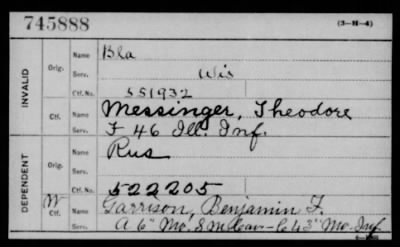 745888 (3-H-4)
INVALID
Orig. Name Bla
Serv. Wis
Ctf. No. 551932
Ctf. Name Messinger, Theodore
Serv. F 46 Ill. Inf.
DEPENDENT
Orig. Name Rus
Serv.
Ctf. No. 522205
W Ctf. Name Garrison, Benjamin F.
Serv. A 6" Mo. S m Cav - C 43" Mo. Inf